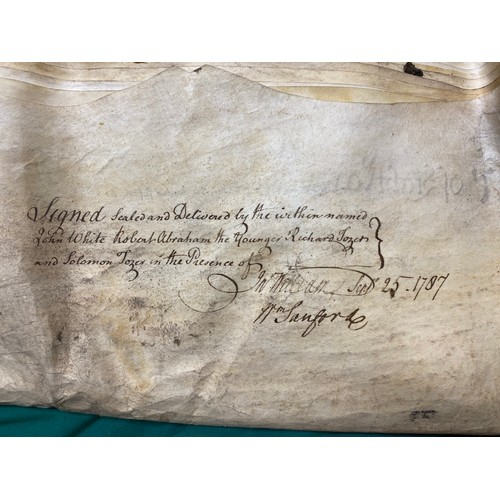 Signed Sealed and Delivered by the within named
John White Robert Abraham the Younger Richard Tozer
and Solomon Tozer in the Presence of
25 - 1787
Wm Sanford